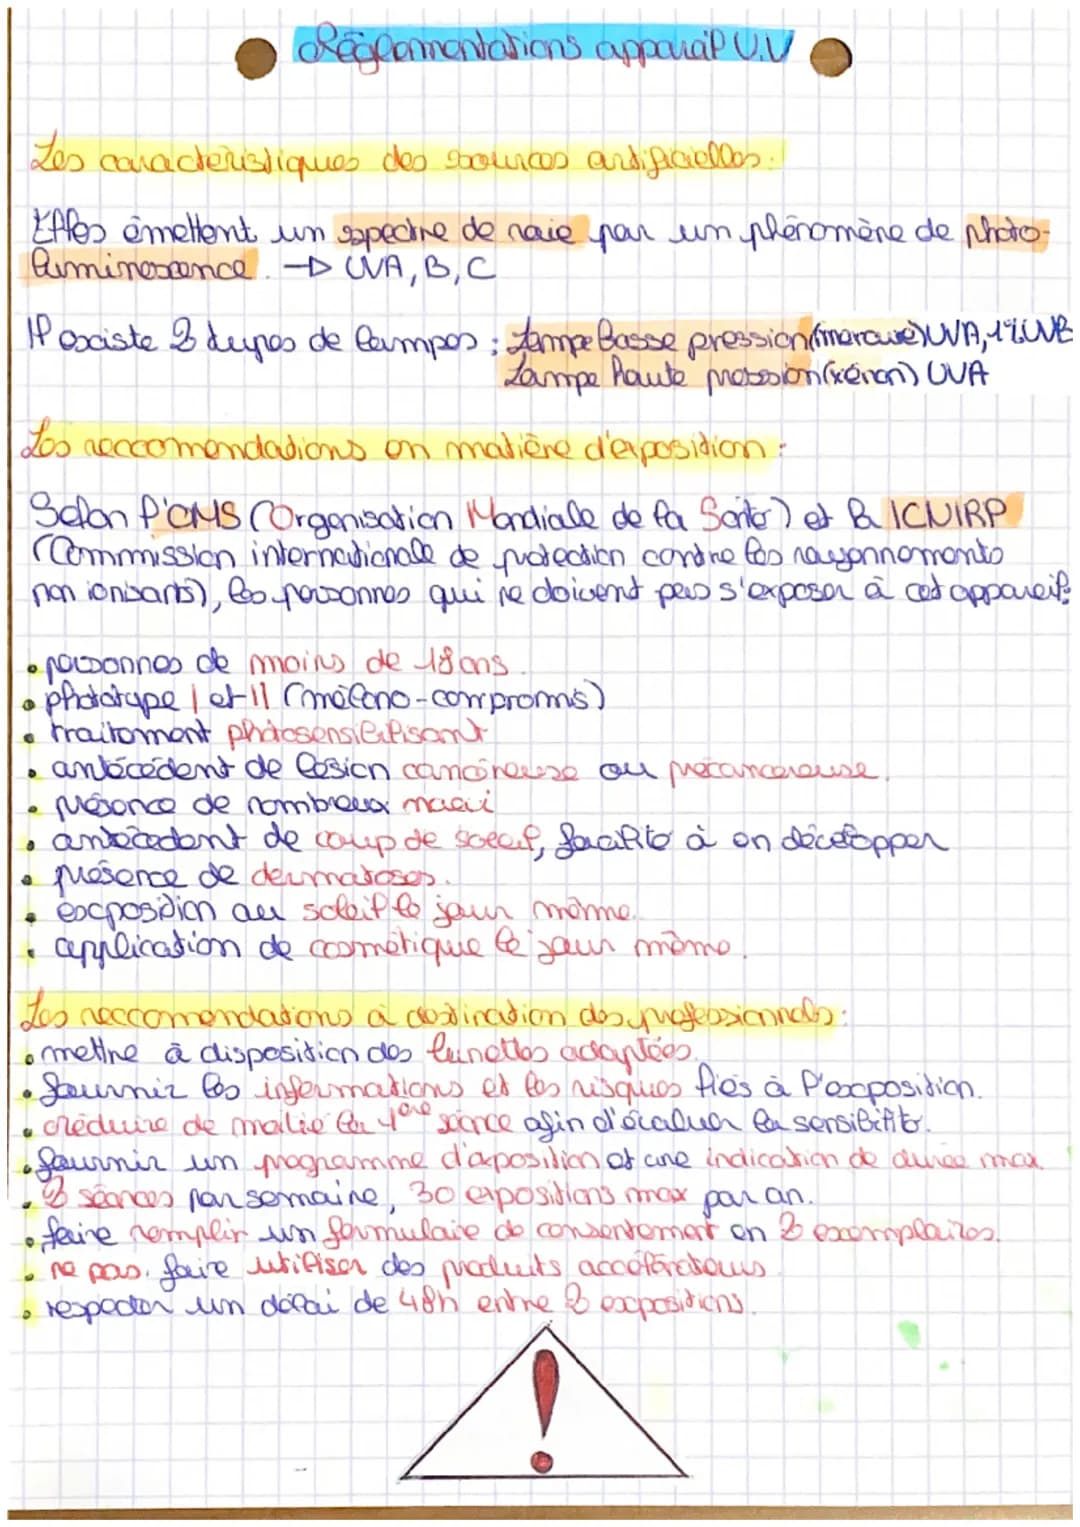 Réglementations appareil U.V
Les caractéristiques des sources artificielles :
Elles émettent un spectre de raie par un phénomène de photo-
luminescence. → UVA, B, C
Il existe 2 types de lampes : Lampe Basse pression (mercure) UVA, 1% UVB
Lampe haute pression (xénon) UVA
Les reccomendations en matière d'exposition :
Selon l'OMS (Organisation Mondiale de la Santé) et la ICNIRP
(Commmission internationale de protection contre les rayonnements
non ionisants), les personnes qui ne doivent pas s'exposer à cet appareil:
• personnes de moins de 18 ans.
• phototype I et II (mélano-compromis)
• traitement photosensibilisant
• antécédent de lésion cancéreuse ou précancereuse.
• présence de nombreux naevi
• antécédent de coup de soleil, facilité à en développer
• présence de dermatoses.
• exposition au soleil le jour même.
• application de cosmétique le jour même.
Les reccomendations à destination des professionnels :
• mettre à disposition des lunettes adaptées.
• fournir les informations et les risques liés à l'exposition.
• réduire de moitié la 1ère séance afin d'évaluer la sensibilité.
• fournir un programme d'exposition et une indication de durée max
• 2 séances par semaine, 30 expositions max par an.
• faire remplir un formulaire de consentement en 2 exemplaires.
• ne pas faire utiliser des produits accélérateurs
• respecter un délai de 48h entre 2 expositions.
!